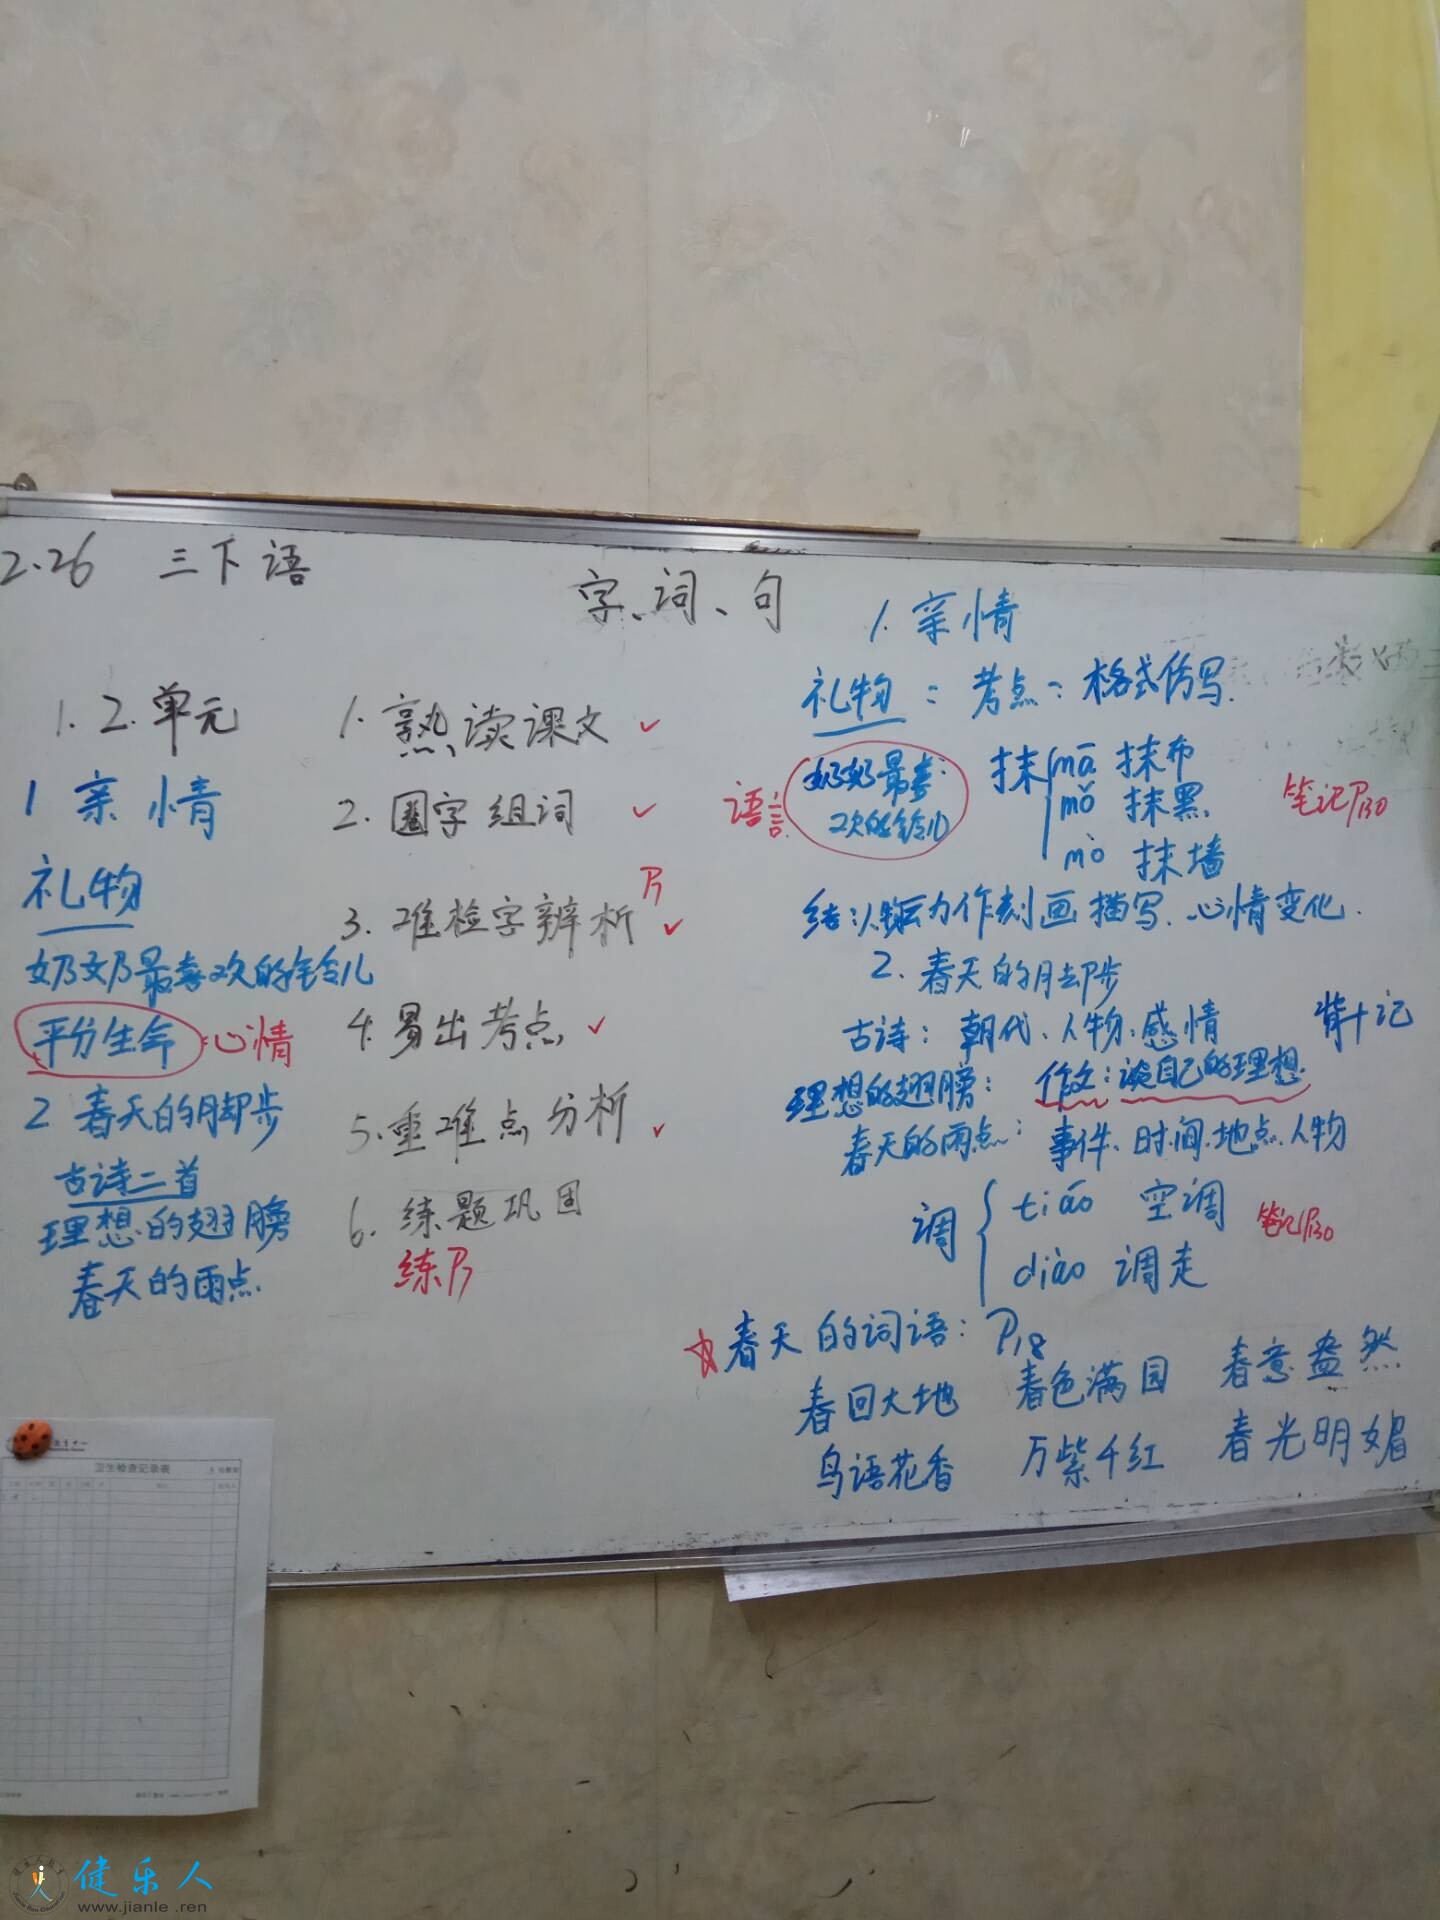 2.26 三下语
字、词、句
1.2.单元
1 亲情
礼物
奶奶最喜欢的铃儿
平分生命:心情
2 春天的脚步
古诗二首
理想的翅膀
春天的雨点
1. 熟读课文 ✓
2. 圈字组词 ✓
3. 难检字辨析 P7 ✓
4. 易出考点 ✓
5. 重难点分析 ✓
6. 练题巩固
练P7
1. 亲情
礼物:考点:格式仿写.
语言 奶奶最喜
欢的铃儿
抹 mā 抹布
mǒ 抹黑
mò 抹墙
笔记P130
结:人物动作刻画描写.心情变化.
2. 春天的脚步
古诗:朝代、人物、感情 背+记
理想的翅膀:作文:谈自己的理想
春天的雨点:事件、时间、地点、人物
调 tiáo 空调
diào 调走
笔记P130
☆春天的词语:P18
春回大地 春色满园 春意盎然
鸟语花香 万紫千红 春光明媚
卫生检查记录表
健乐人
www.jianle.ren